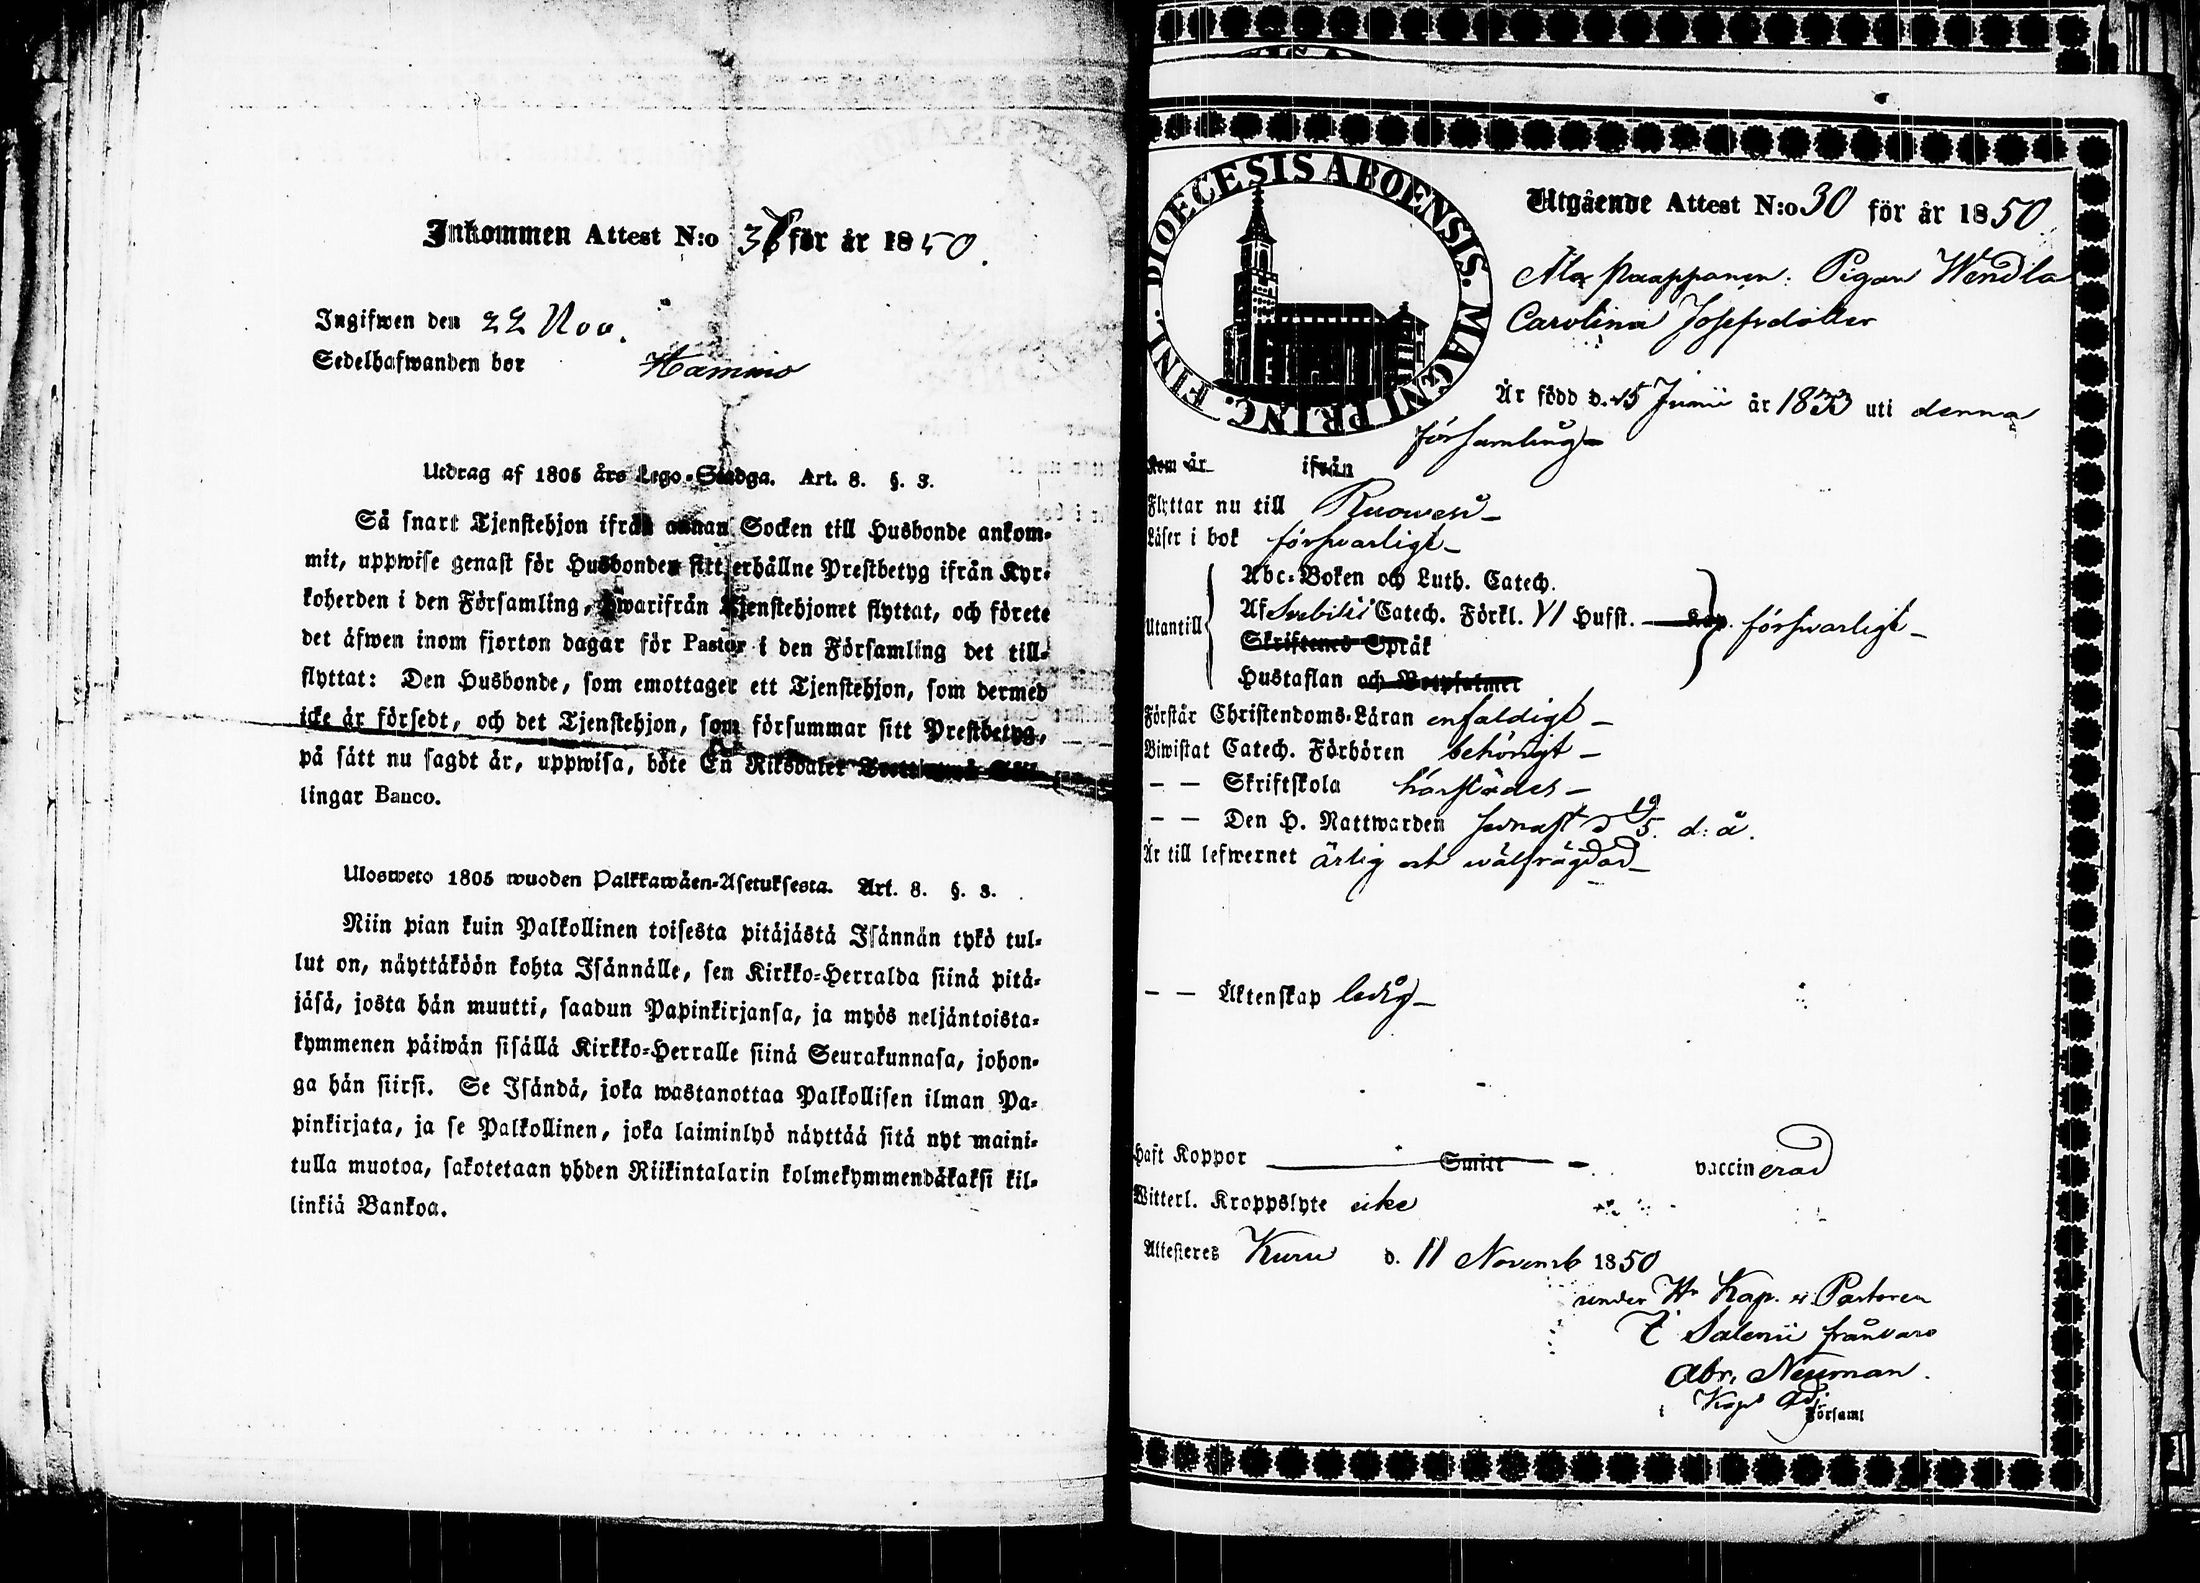 Inkommen Attest N:o 36 för år 1850.
Ingifwen den 22 Nov.
Sedelhafwanden bor Hammio
Utdrag af 1805 års Lego-Stadga. Art. 8. §. 3.
Så snart Tjenstehjon ifrån annan Socken till Husbonde ankom-
mit, uppwise genast för Husbonden sitt erhållne Prestbetyg ifrån Kyr-
koherden i den Församling, hwarifrån Tjenstehjonet flyttat, och förete
det äfwen inom fjorton dagar för Pastor i den Församling det till-
flyttat: Den Husbonde, som emottager ett Tjenstehjon, som dermed
icke är försedt, och det Tjenstehjon, som försummar sitt Prestbetyg,
på sätt nu sagdt är, uppwisa, böte En Riksdaler
lingar Banco.
Ulosweto 1805 wuoden Palkkawäen-Asetuksesta. Art. 8. §. 3.
Niin pian kuin Palkollinen toisesta pitäjästä Isännän tykö tul-
lut on, näyttäköön kohta Isännälle, sen Kirkko-Herralda siinä pitä-
jäsä, josta hän muutti, saadun Papinkirjansa, ja myös neljäntoista-
kymmenen päiwän sisällä Kirkko-Herralle siinä Seurakunnasa, johon-
ga hän siirsi. Se Isändä, joka wastanottaa Palkollisen ilman Pa-
pinkirjata, ja se Palkollinen, joka laiminlyö näyttää sitä nyt maini-
tulla muotoa, sakotetaan yhden Riikintalarin kolmekymmendäkaksi kil-
linkiä Bankoa.
DIOECESIS ABOENSIS. MAGNI PRINC. FINL.
Utgående Attest N:o 30 för år 1850
Ala Paappanen: Pigan Wendla
Carolina Josefsdotter
Är född d. 15 Junii år 1833 uti denna
församling
Kom år ifrån
Flyttar nu till Ruowesi
Läser i bok försvarligt
Utantill
Abc-Boken och Luth. Catech.
Af Svebilii Catech. Förkl. VI Hufst. Kap. försvarligt
Skriftenes Språk
Hustaflan och Botpsalmer
Förstår Christendoms-Läran enfaldigt
Biwistat Catech. Förhören behörigt
— — Skriftskola härstädes
— — Den H. Nattwarden sednast d 19/5. d: å.
Är till lefwernet ärlig och wälfrägdad
— — Äktenskap ledig
Haft Koppor Smitt vaccinerad
Witterl. Kroppslyte icke
Attesteres Kuru d. 11 Novemb 1850
under Hr Kap. & Pastoren
Salenii frånvaro
Abr. Neuman.
Kapl Adj
i Församl